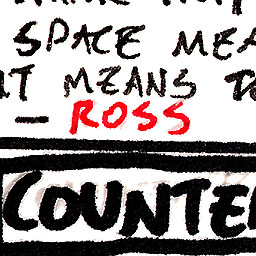 SPACE MEA
IT MEANS TO
— ROSS
COUNTE